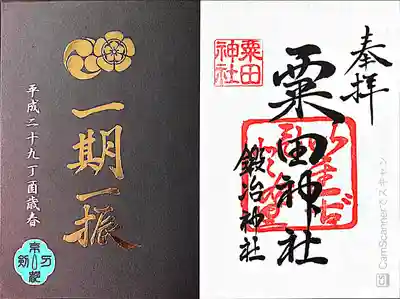 一期一振
平成二十九丁酉歳春
京都刀剣
奉拝
粟田神社
鍛冶神社
粟田
神社
CamScannerでスキャン
CS